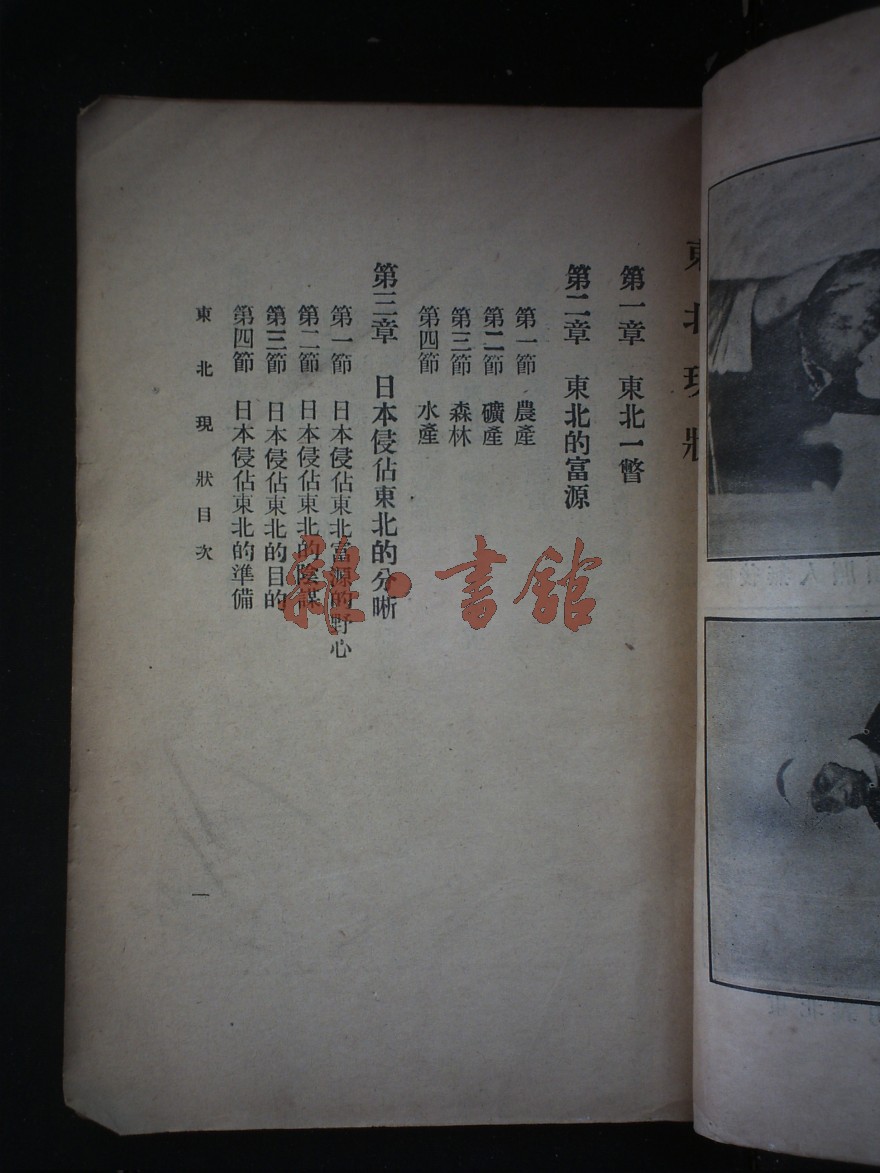 東北現狀
第一章 東北一瞥
第二章 東北的富源
第一節 農產
第二節 礦產
第三節 森林
第四節 水產
第三章 日本侵佔東北的分晰
第一節 日本侵佔東北富源的野心
第二節 日本侵佔東北的陰謀
第三節 日本侵佔東北的目的
第四節 日本侵佔東北的準備
東北現狀目次
一
雜·書館